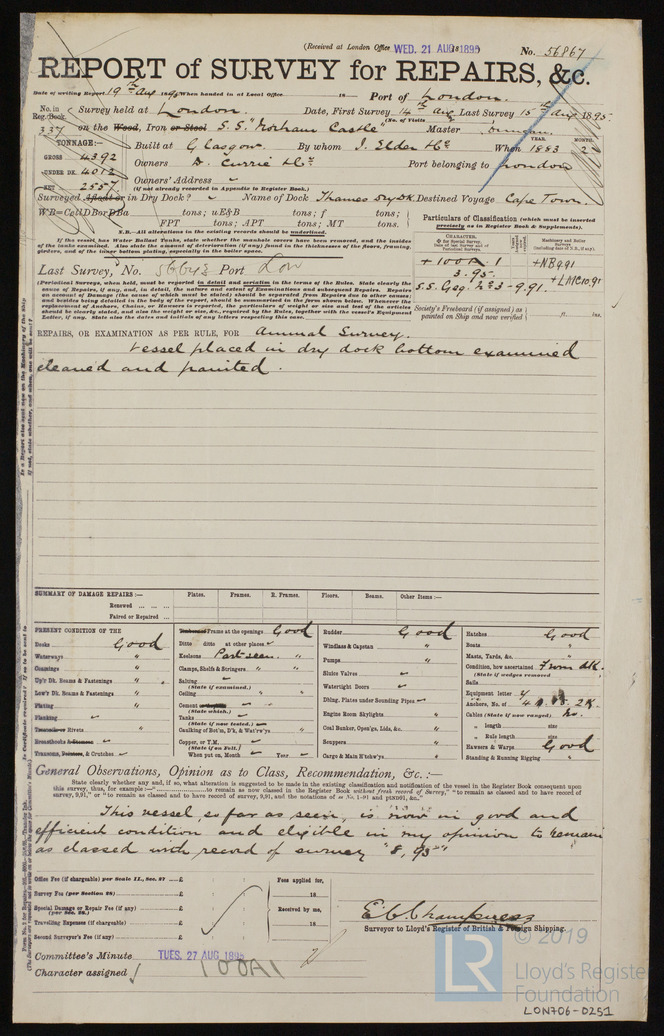 (Received at London Office WED. 21 AUG 1895
No. 56867
REPORT of SURVEY for REPAIRS, &c.
Date of writing Report 19th Aug 1895 When handed in at Local Office 18 Port of London.
No. in Reg. Book. Survey held at London. Date, First Survey 14th Aug Last Survey 15th Aug 1895.
(No. of Visits
337 on the Wood, Iron or Steel S.S. "Norham Castle" Master
TONNAGE:— Built at Glasgow. By whom J. Elder & Co YEAR. MONTH. When 1883
GROSS 4392
Owners D. Currie & Co Port belonging to London
UNDER DK. 4012
Owners' Address
NET 2557 (if not already recorded in Appendix to Register Book.)
Surveyed Afloat or in Dry Dock? Name of Dock Thames Dry Dk. Destined Voyage Cape Town.
WB=CellDBorDBa tons; uE&B tons; f tons;
FPT tons; APT tons; MT tons.
N.B.—All alterations in the existing records should be underlined.
If the vessel has Water Ballast Tanks, state whether the manhole covers have been removed, and the insides of the tanks examined. Also state the amount of deterioration (if any) found in the thicknesses of the floors, framing, girders, and of the inner bottom plating, especially in the boiler space.
Particulars of Classification (which must be inserted precisely as in Register Book & Supplements).
CHARACTER.
Machinery and Boiler Surveys
+ 100A 1
3.95.
S.S. Gsg. No 3 - 9.91.
+NB9.91
+LMC10.91
Last Survey, No. Port Lon
(Periodical Surveys, when held, must be reported in detail and seriatim in the terms of the Rules. State clearly the cause of Repairs, if any, and, in detail, the nature and extent of Examinations and subsequent Repairs. Repairs on account of Damage (the cause of which must be stated) should be separated from Repairs due to other causes; and besides being detailed in the body of the report, should be summarised in the form shown below. Whenever the replacement of Anchors, Chains, or Hawsers is reported, the particulars of weight or size and test of the articles should be clearly stated, and also the weight or size, &c., required by the Rules, together with the vessel's Equipment Letter, if any. State also the dates and initials of any letters respecting this case.
Society's Freeboard (if assigned) as painted on Ship and now verified ft. ins.
REPAIRS, OR EXAMINATION AS PER RULE, FOR Annual Survey.
Vessel placed in dry dock bottom examined
cleaned and painted.
SUMMARY OF DAMAGE REPAIRS:— Plates. Frames. R. Frames. Floors. Beams. Other Items:—
Renewed
Faired or Repaired
PRESENT CONDITION OF THE
Decks Good
Waterways "
Coamings "
Up'r Dk. Beams & Fastenings "
Low'r Dk. Beams & Fastenings "
Plating "
Planking
Treenails or Rivets "
Breasthooks & Stemson
Transoms, Pointers, & Crutches
Frame at the openings Good
Ditto ditto at other places
Keelsons Part seen
Clamps, Shelfs & Stringers " "
Salting
(State if examined.)
Ceiling "
Cement
(State which.)
Tanks
(State if now tested.)
Caulking of Bot'm, D'k, & Wat'rw'ys "
Copper, or Y.M.
(State if on Felt.)
When put on, Month Year
Rudder Good
Windlass & Capstan "
Pumps "
Sluice Valves
Watertight Doors
Dblng. Plates under Sounding Pipes
Engine Room Skylights "
Coal Bunker, Open'gs, Lids, &c. "
Scuppers "
Cargo & Main H'tchw'ys "
Hatches Good
Boats "
Masts, Yards, &c. "
Condition, how ascertained From dk.
(State if wedges removed
Sails
Equipment letter
Anchors, No. of 4 2K.
Cables (State if now ranged) No.
" length size
" Rule length size
Hawsers & Warps Good
Standing & Running Rigging "
General Observations, Opinion as to Class, Recommendation, &c.:—
State clearly whether any and, if so, what alteration is suggested to be made in the existing classification and notification of the vessel in the Register Book consequent upon this survey, thus, for example:—" to remain as now classed in the Register Book without fresh record of Survey," "to remain as classed and to have record of survey, 9,91," or "to remain as classed and to have record of survey, 9,91, and the notations of ss No. 1-91 and ptND91, &c."
This vessel, so far as seen, is now in good and
efficient condition and eligible in my opinion to remain
as classed with record of survey "8,95"
Office Fee (if chargeable) per Scale II., Sec. 27 £
Survey Fee (per Section 28) £
Special Damage or Repair Fee (if any) £
(per Sec. 28.)
Travelling Expenses (if chargeable) £
Second Surveyor's Fee (if any) £
Fees applied for, 18
Received by me, 18
E C Champness
Surveyor to Lloyd's Register of British & Foreign Shipping.
Committee's Minute TUES. 27 AUG 1895
Character assigned 100A1
© 2019
LR Lloyd's Register Foundation
LON706-0251